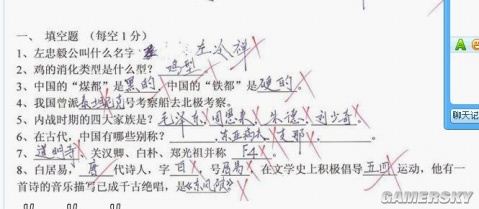 一、填空题（每空1分）
1、左忠毅公叫什么名字 左冷禅
2、鸡的消化类型是什么型？ 鸡型
3、中国的“煤都”是黑的，中国的“铁都”是硬的。
4、我国曾派泰坦尼克号考察船去北极考察。
5、内战时期的四大家族是？毛泽东、周恩来、朱德、刘少奇。
6、在古代，中国有哪些别称？ 东亚病夫、支那、。
7、道明寺、关汉卿、白朴、郑光祖并称 F4 。
8、白居易，唐代诗人，字白，号居易，在文学史上积极倡导五四运动，他有一
首诗的音乐描写已成千古绝唱，是《东风破》
聊天记
GAMERSKY